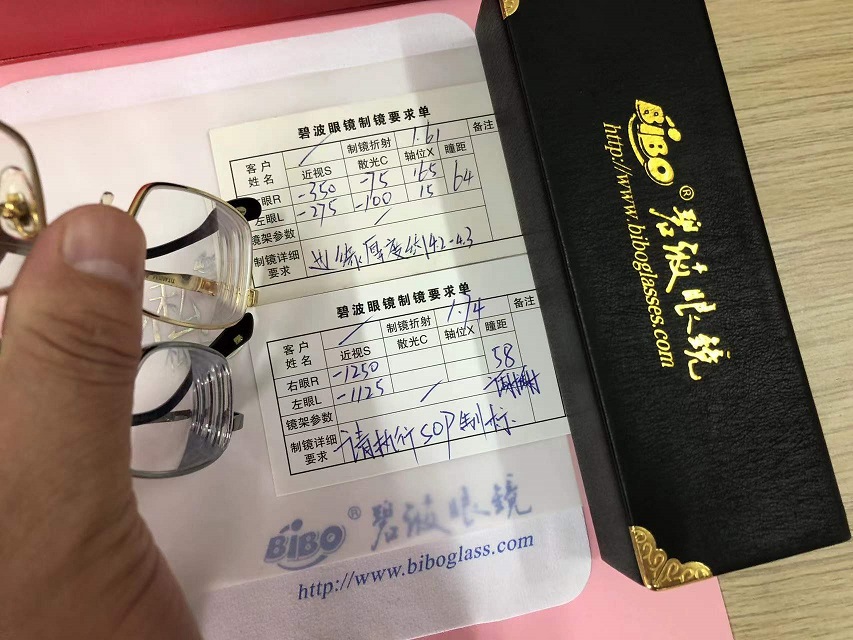 碧波眼镜制镜要求单
客户
姓名
近视S
制镜折射
1.61
散光C
轴位X
瞳距
备注
眼R
-350
-75
165
64
左眼L
-275
-100
15
镜架参数
制镜详细
要求
边缘厚度约4.2-4.3
碧波眼镜制镜要求单
客户
姓名
近视S
制镜折射
1.74
散光C
轴位X
瞳距
备注
右眼R
-1250
58
左眼L
-1125
镜架参数
制镜详细
要求
请执行SOP制标
BiBO® 碧波眼镜
http://www.biboglass.com
BiBO® 碧波眼镜
http://www.biboglasses.com